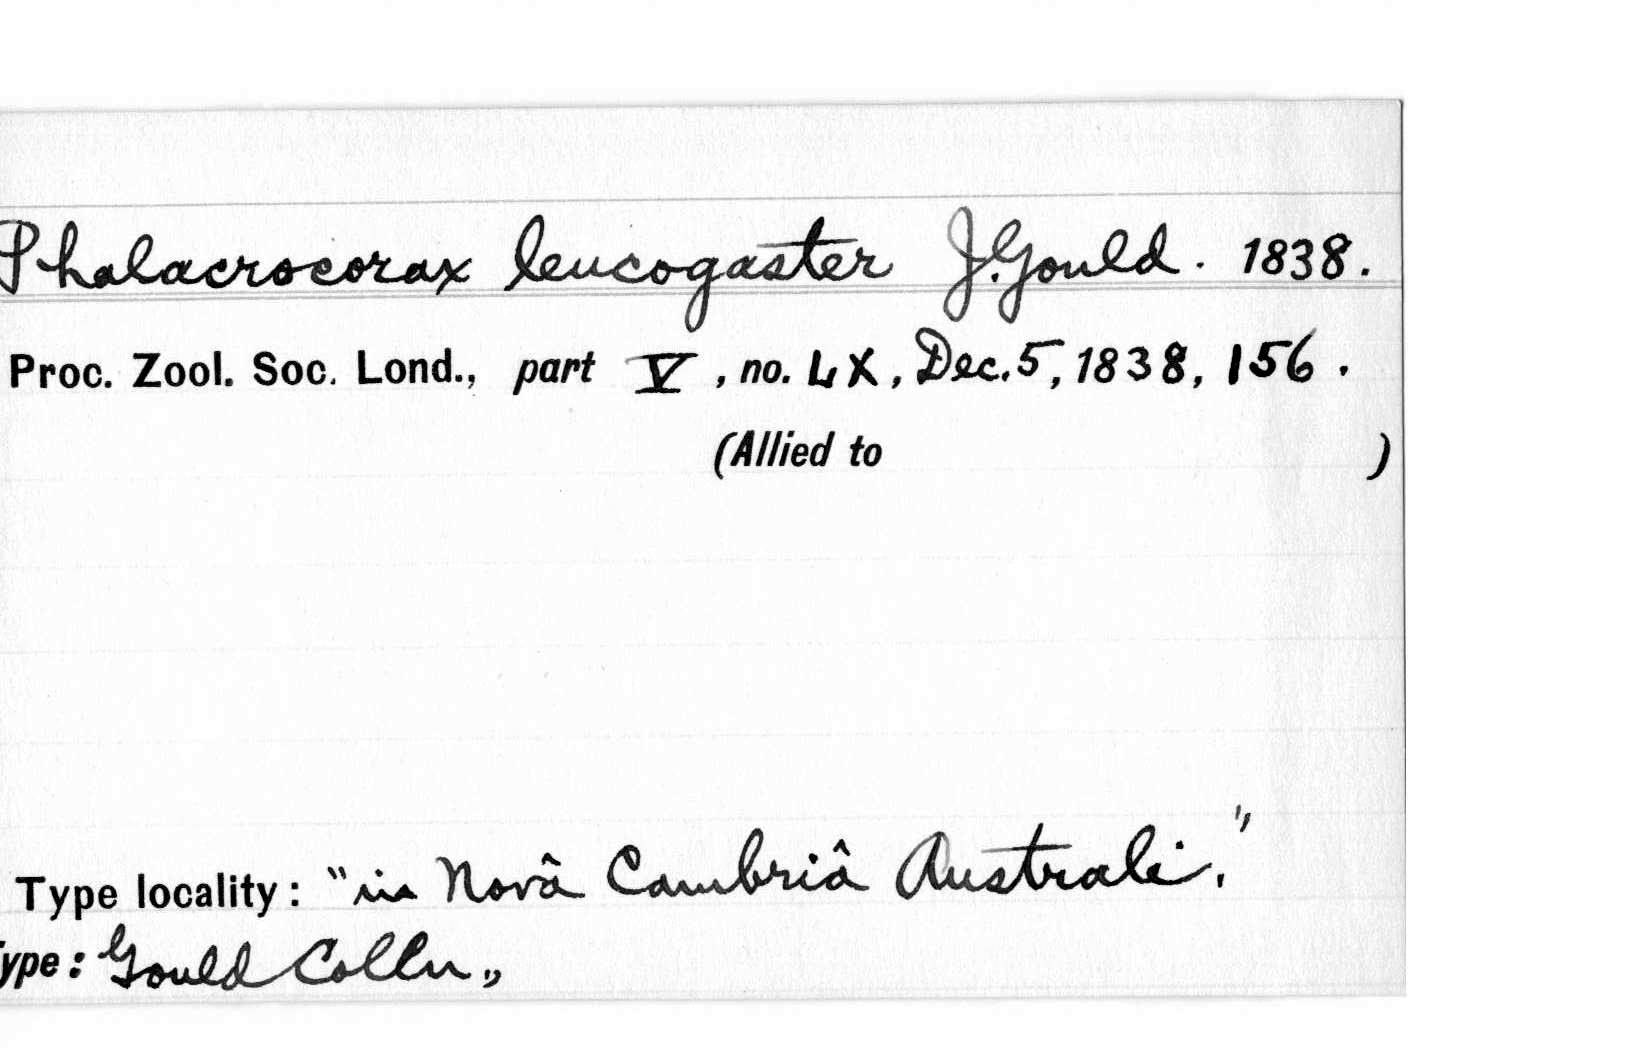 Phalacrocorax leucogaster J. Gould. 1838.
Proc. Zool. Soc. Lond., part V, no. LX, Dec. 5, 1838, 156.
(Allied to )
Type locality: "in Novâ Cambriâ Australi,"
ype: Gould Colln.,